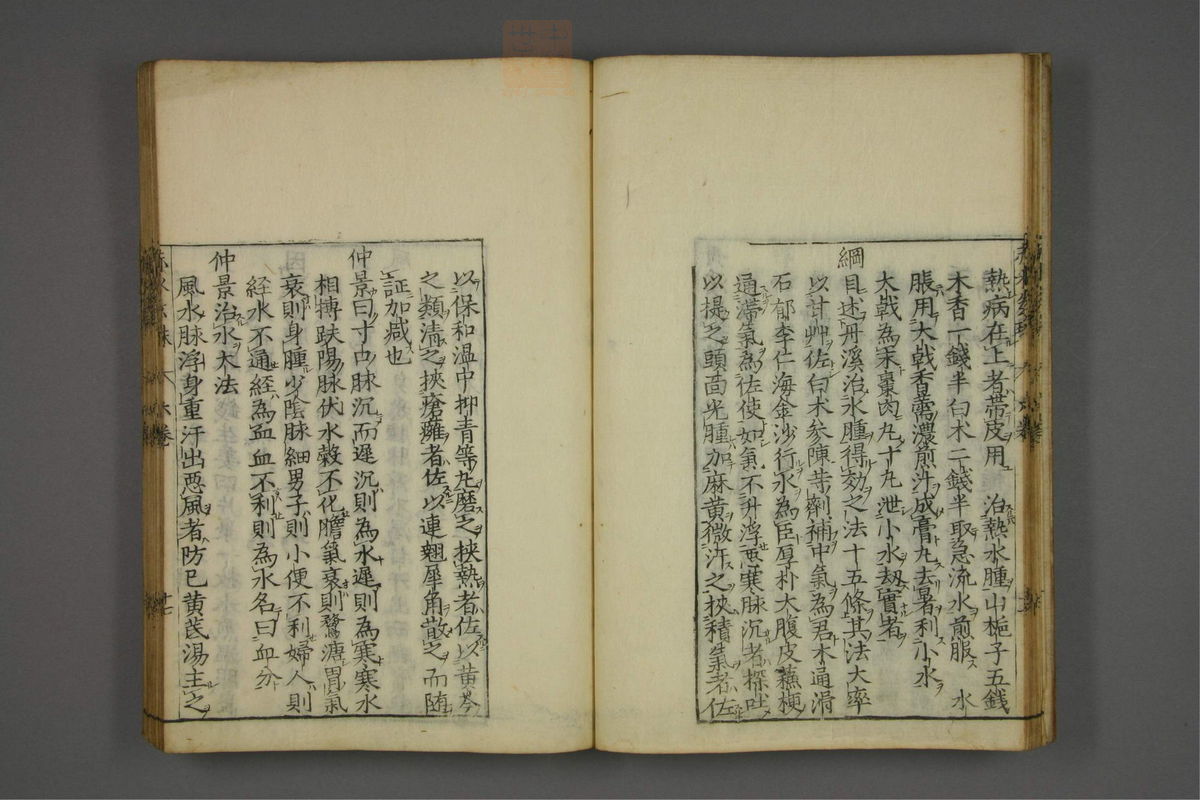 熱病在上者帶皮用　治熱水腫山梔子五錢
木香一錢半白术二錢半取急流水煎服　水
脹用大戟香薷濃煎汁成膏丸去暑利小水
大戟為末棗肉丸十丸泄小水劫實者
綱目述丹溪治水腫得効之法十五條其法大率
以甘艸佐白术參陳芩劑補中氣為君木通滑
石郁李仁海金沙行水為臣厚朴大腹皮蘇梗
通滯氣為佐使如氣不升浮而寒脉沉者探吐
以提之頭面光腫加麻黄微汗之挾積氣者佐
以保和温中抑青等丸磨之挾熱者佐以黄芩
之類清之挾瘡癰者佐以連翹犀角散之而随
証加减也
仲景曰寸口脉沉而遲沉則為水遲則為寒寒水
相搏趺陽脉伏水穀不化膽氣衰則鶩溏胃氣
衰則身腫少陰脉細男子則小便不利婦人則
経水不通経為血血不利則為水名曰血分
仲景治水大法
風水脉浮身重汗出惡風者防已黄芪湯主之